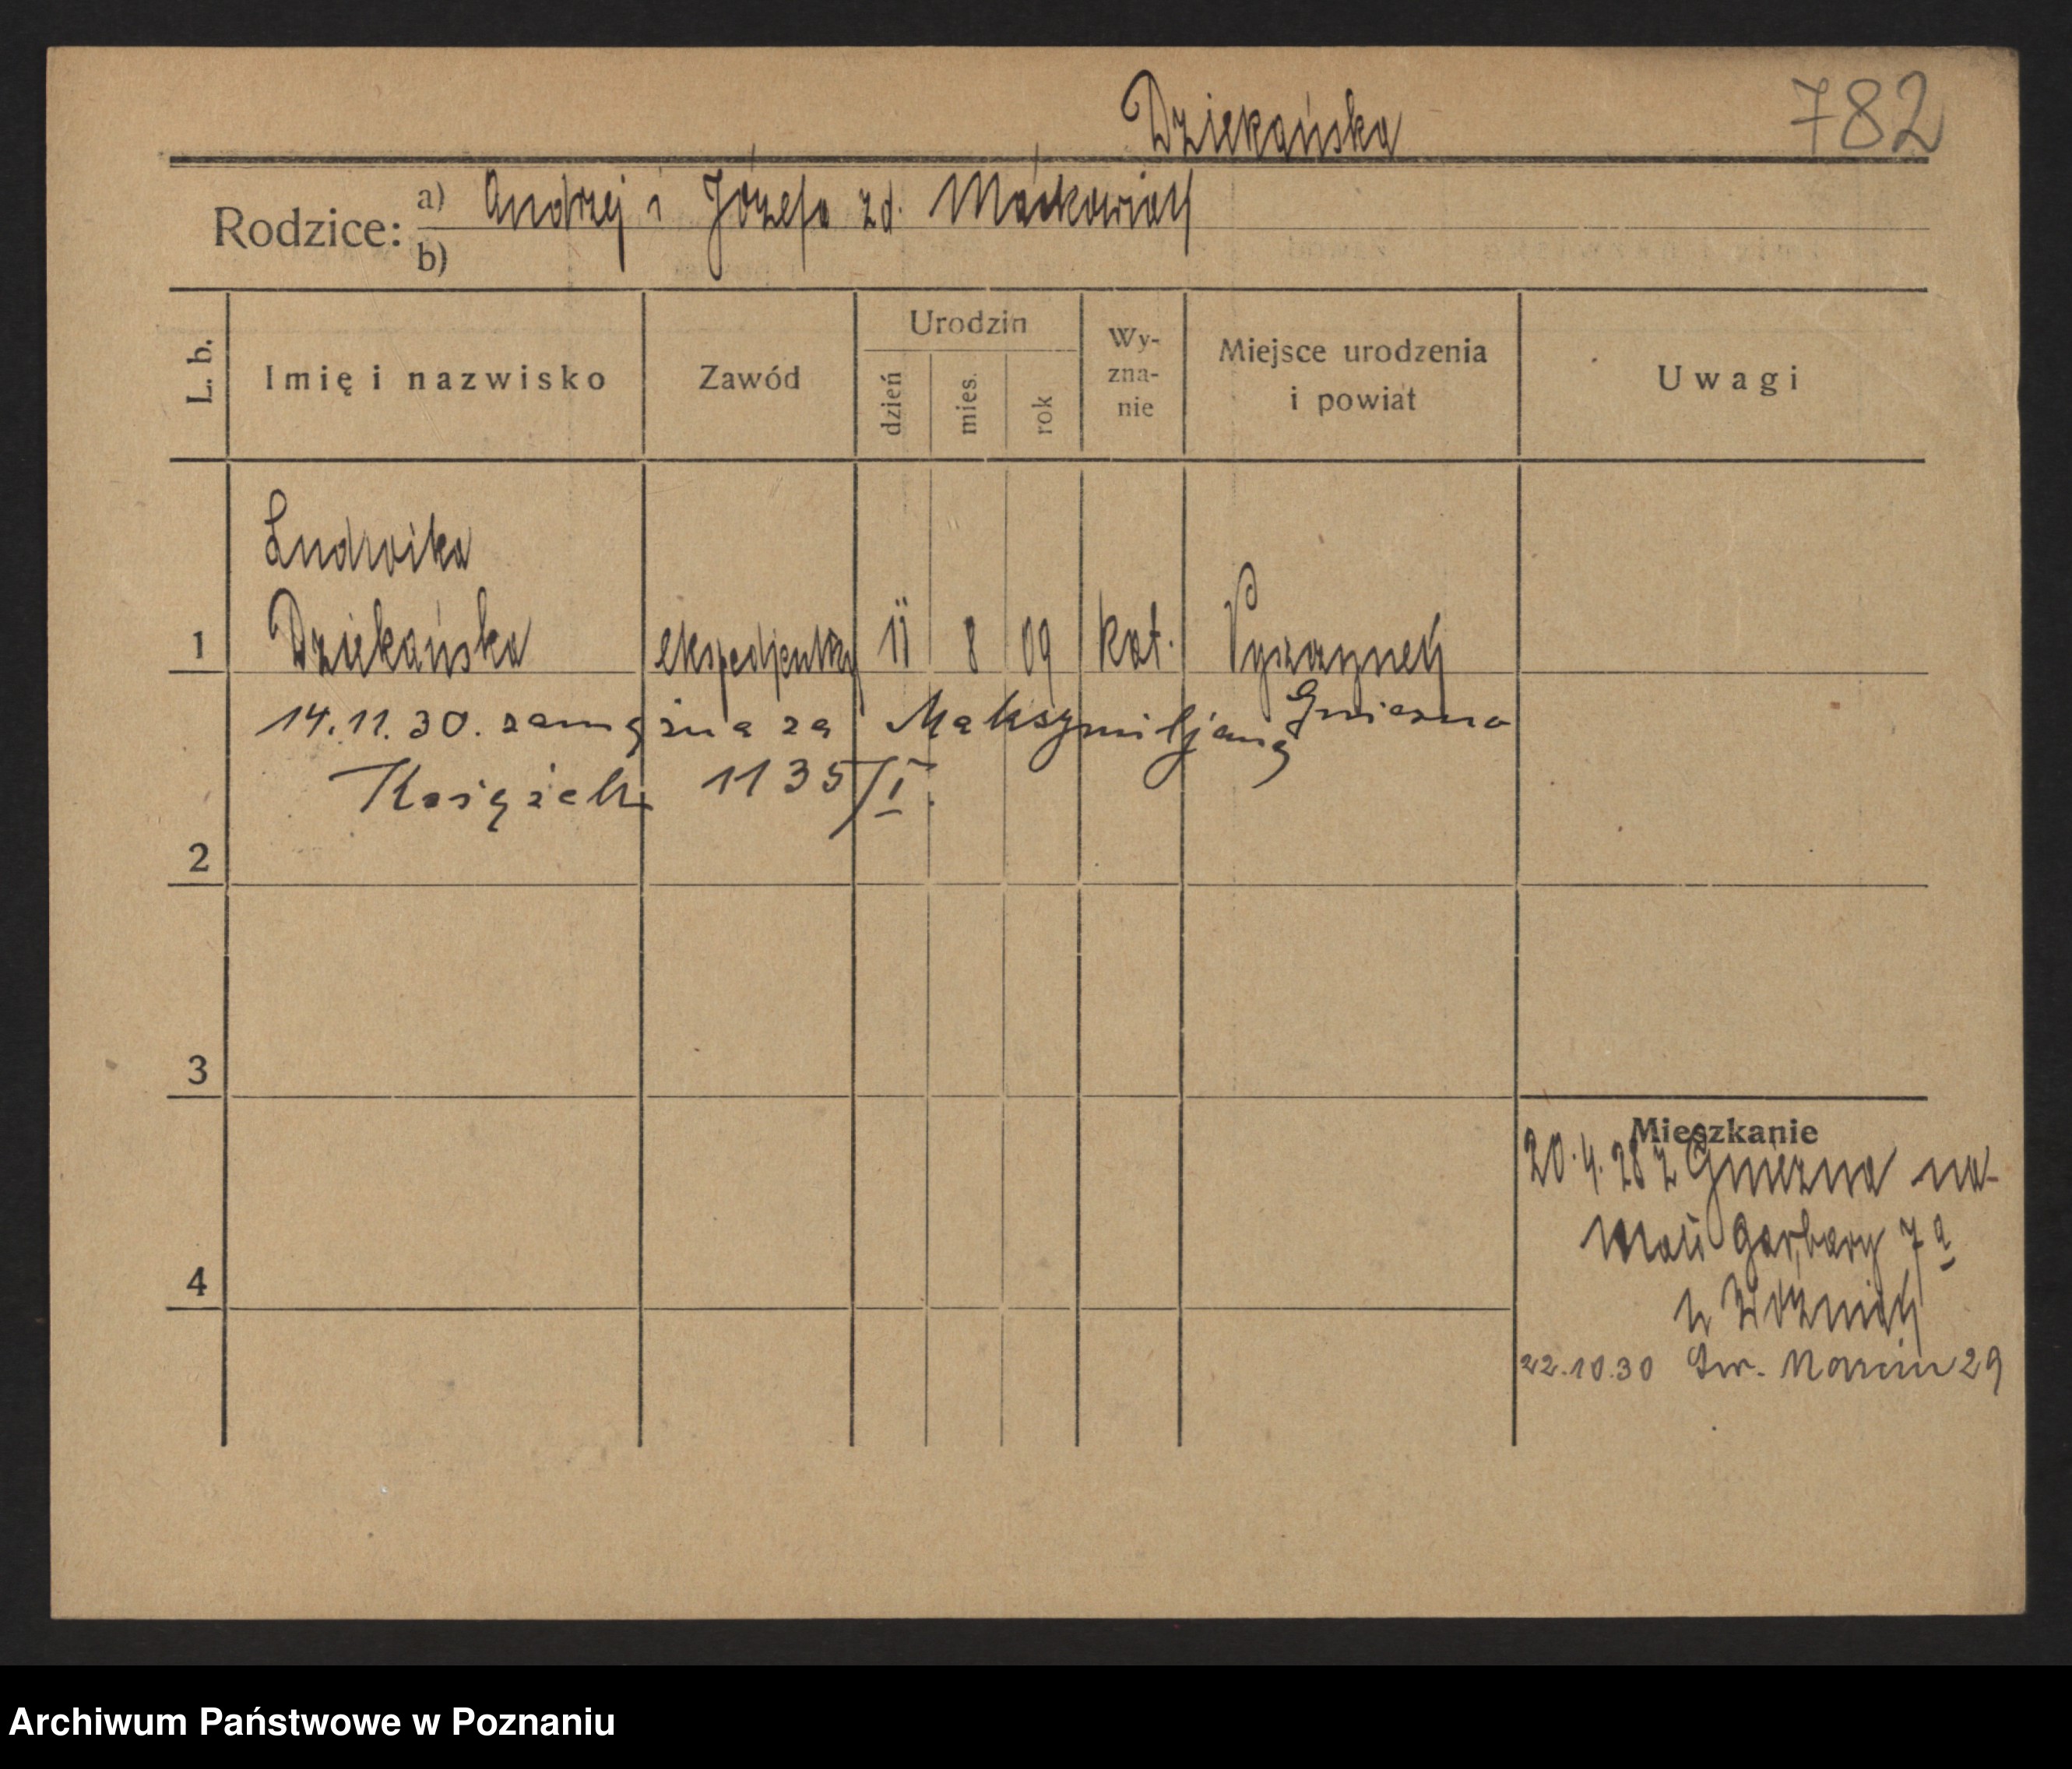 Dziekańska 782
Rodzice: a) Andrzej i Józefa zd. Maćkowiak
b)
L. b. Imię i nazwisko Zawód Urodzin dzień mies. rok Wy-zna-nie Miejsce urodzenia i powiat Uwagi
Ludwika
1 Dziekańska ekspedjentka 11 8 09 kat.
14.11.30. zamężna za Maksymiljana Gniezno
1135/I.
2
3
Mieszkanie
20.4.28 z Gniezna na-
Garbary 7a
4
u Woźniak
22.10.30 Św. Marcin 29
Archiwum Państwowe w Poznaniu